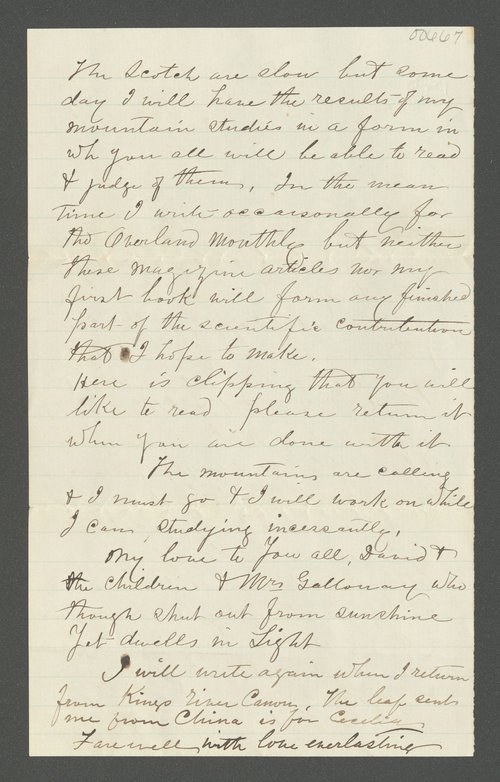 00667
The Scotch are slow but some
day I will have the results of my
mountain studies in a form in
wh you all will be able to read
& judge of them. In the mean
time I write occasionally for
the Overland Monthly but neither
these magazine articles nor my
first book will form any finished
part of the scientific contribution
that I hope to make.
Here is clipping that you will
like to read please return it
when you are done with it
The mountains are calling
& I must go & I will work on while
I can, studying incessantly.
My love to you all, David &
the children & Mrs Galloway who
though shut out from sunshine
Yet dwells in Light
I will write again when I return
from Kings River Canon. The leaf sent
me from China is for Cecelia
Farewell, with love everlasting